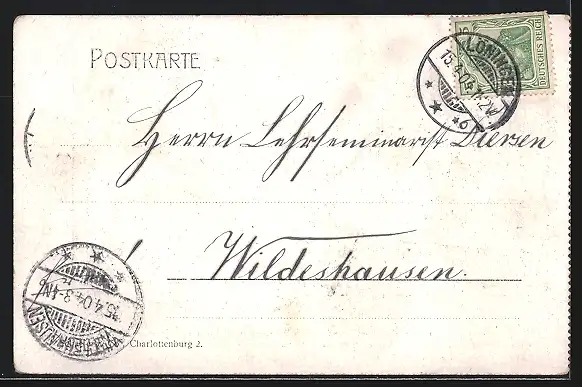 POSTKARTE
DEUTSCHES REICH
LÖNINGEN
15.4.04
Herrn Lehrseminarist Diersen
Wildeshausen.
15.4.04.3-4N
WILDESHAUSEN
Charlottenburg 2.